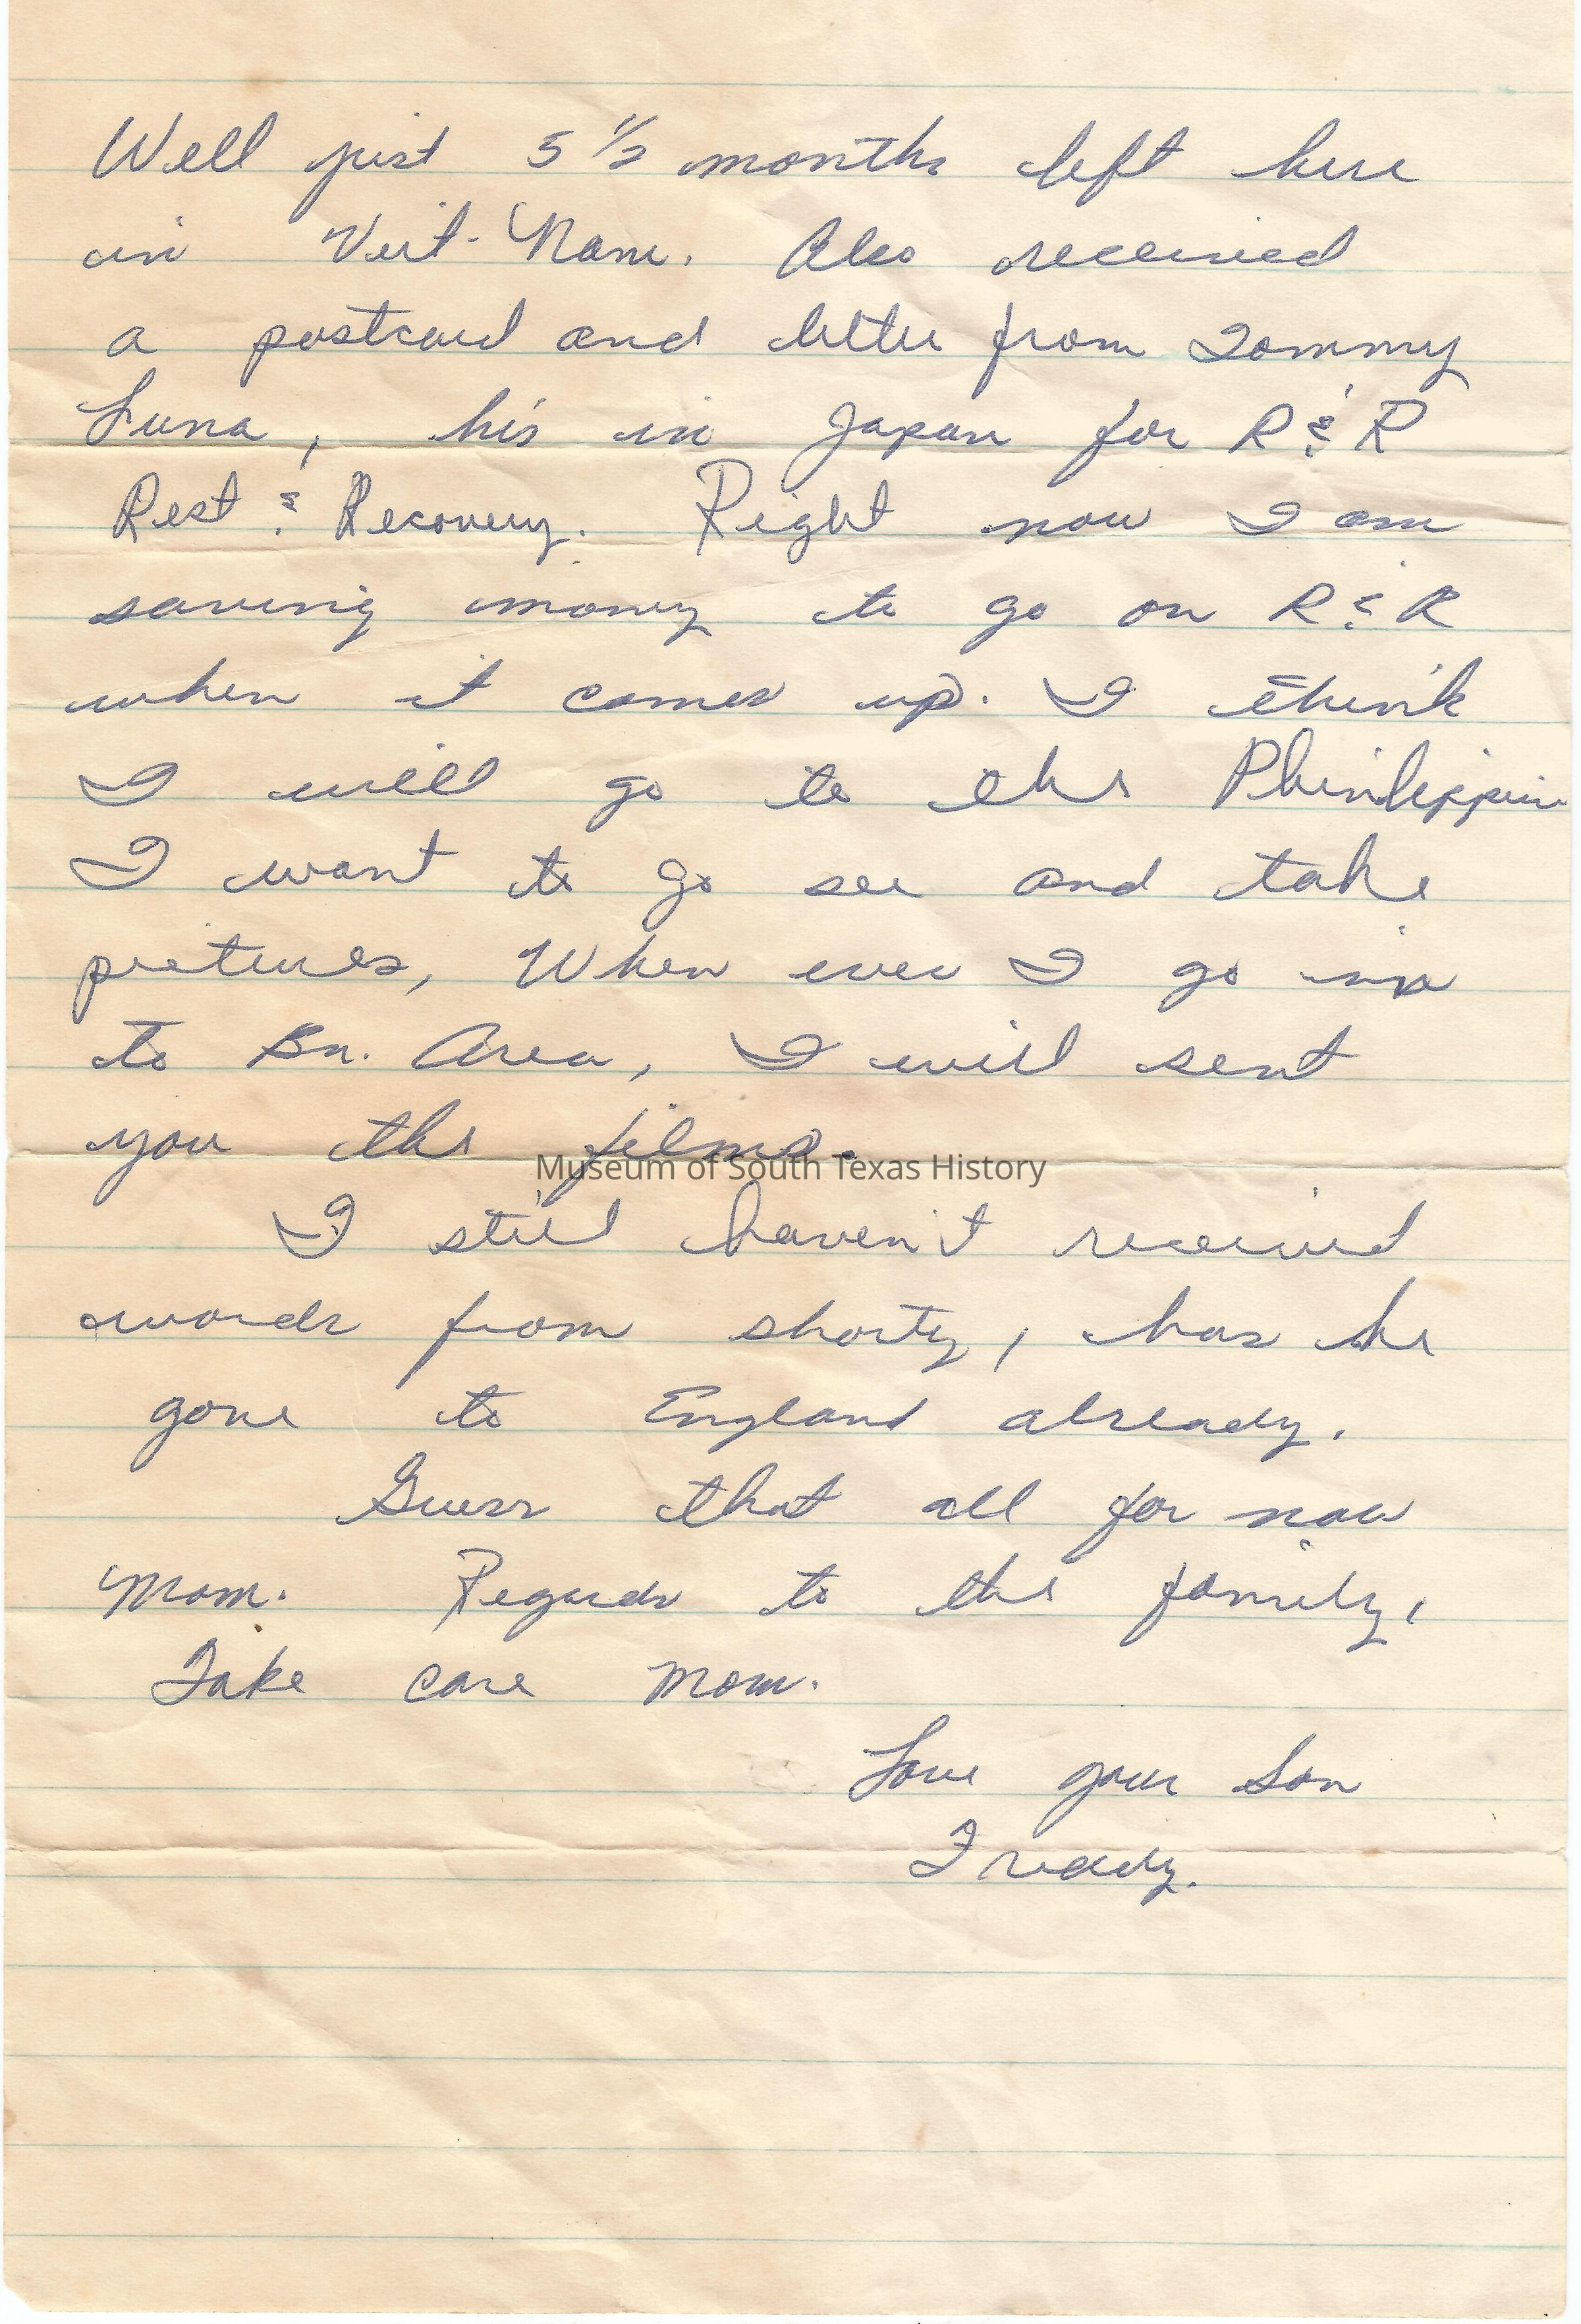 Well just 5 1/2 months left here
in Viet-Nam. Also received
a postcard and letter from Tommy
Luna, his in Japan for R & R
Rest & Recovery. Right now I am
saving money to go on R & R
when it comes up. I think
I will go to the
I want to go see and take
pictures, When ever I go in
to Bn. Area, I will sent
you the films.
Museum of South Texas History
I still haven't received
words from shorty, has he
gone to England already.
Guess that all for now
Mom. Regards to the family,
Take care Mom.
Love your Son
Freddy.